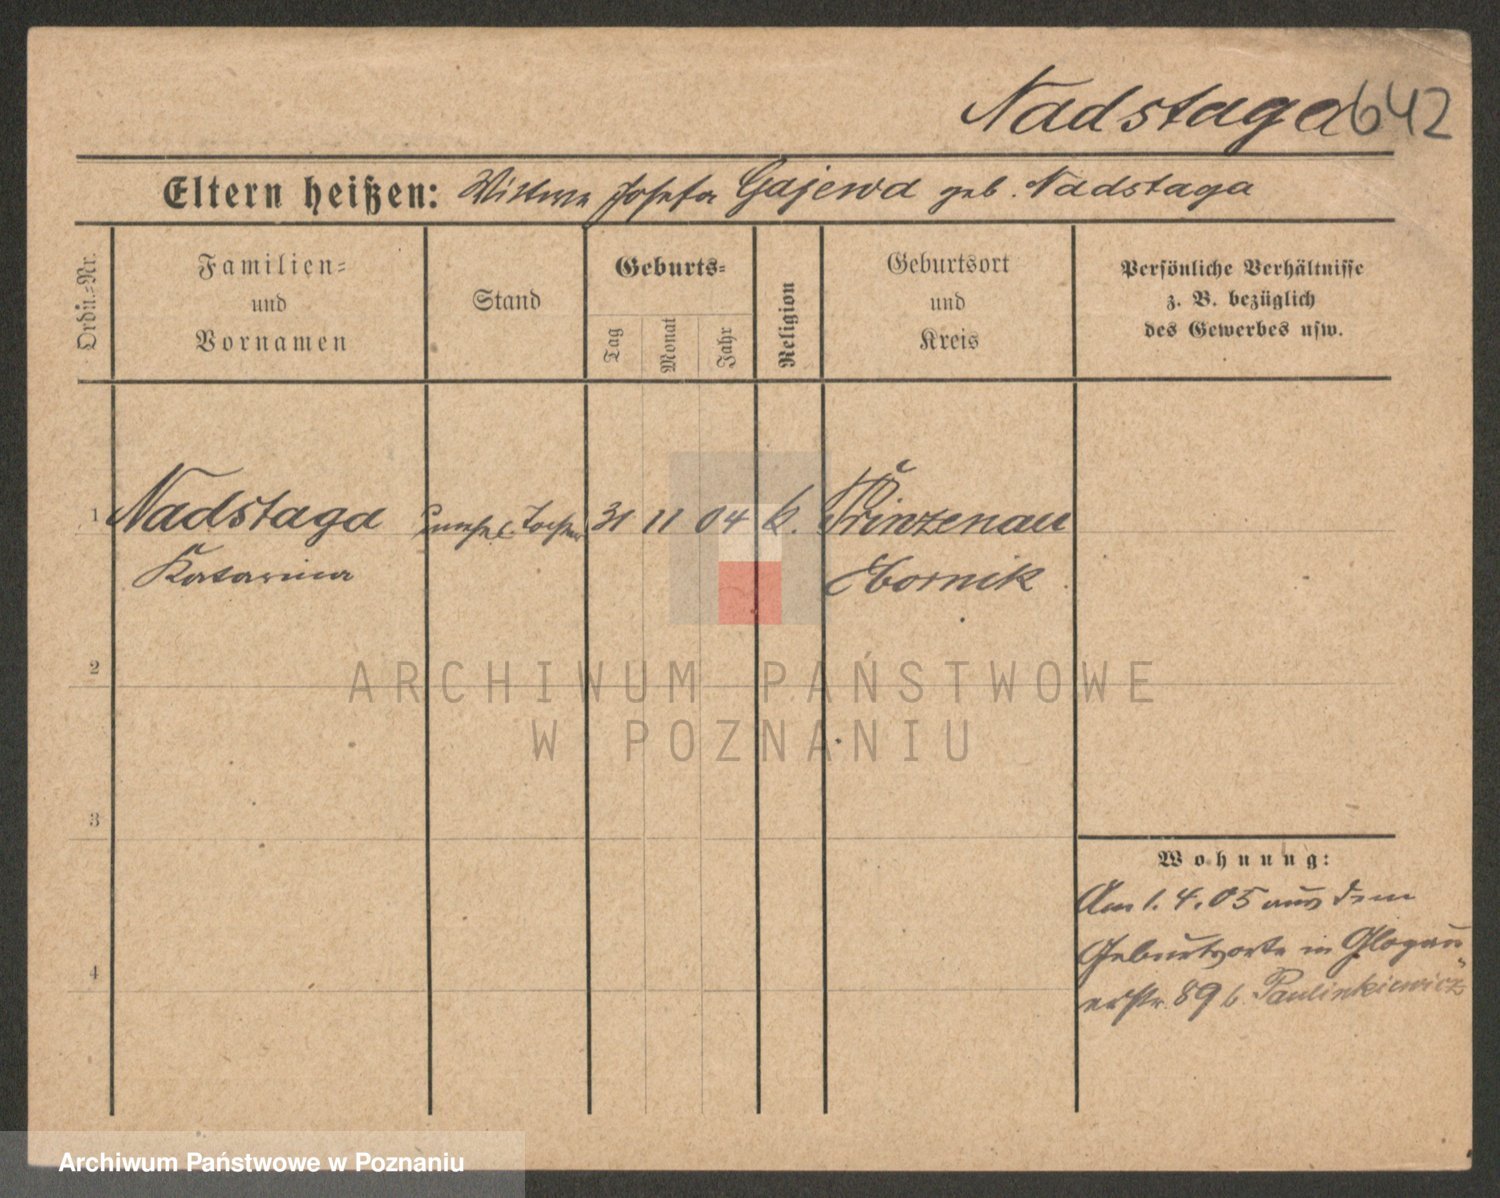 Nadstaga 642
Eltern heißen: Wittwe Josefa Gajewa geb. Nadstaga
Ordn.-Nr.
Familien-
und
Vornamen
Stand
Geburts-
Tag
Monat
Jahr
Religion
Geburtsort
und
Kreis
Persönliche Verhältnisse
z. B. bezüglich
des Gewerbes usw.
1 Nadstaga unehel. Tochter 31 11 04 k. Prinzenau
Katarina Obornik
2
ARCHIWUM PAŃSTWOWE
W POZNANIU
3
4
Wohnung:
Am 1. 4. 05 aus dem
Geburtsorte in Glogau
erstr. 89 b. Paulinkiewicz
Archiwum Państwowe w Poznaniu